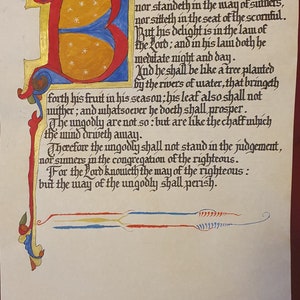 B
nor standeth in the way of sinners,
nor sitteth in the seat of the scornful.
But his delight is in the law of
the Lord; and in his law doth he
meditate night and day.
And he shall be like a tree planted
by the rivers of water, that bringeth
forth his fruit in his season; his leaf also shall not
wither; and whatsoever he doeth shall prosper.
The ungodly are not so: but are like the chaff which
the wind driveth away.
Therefore the ungodly shall not stand in the judgement,
nor sinners in the congregation of the righteous.
For the Lord knoweth the way of the righteous:
but the way of the ungodly shall perish.